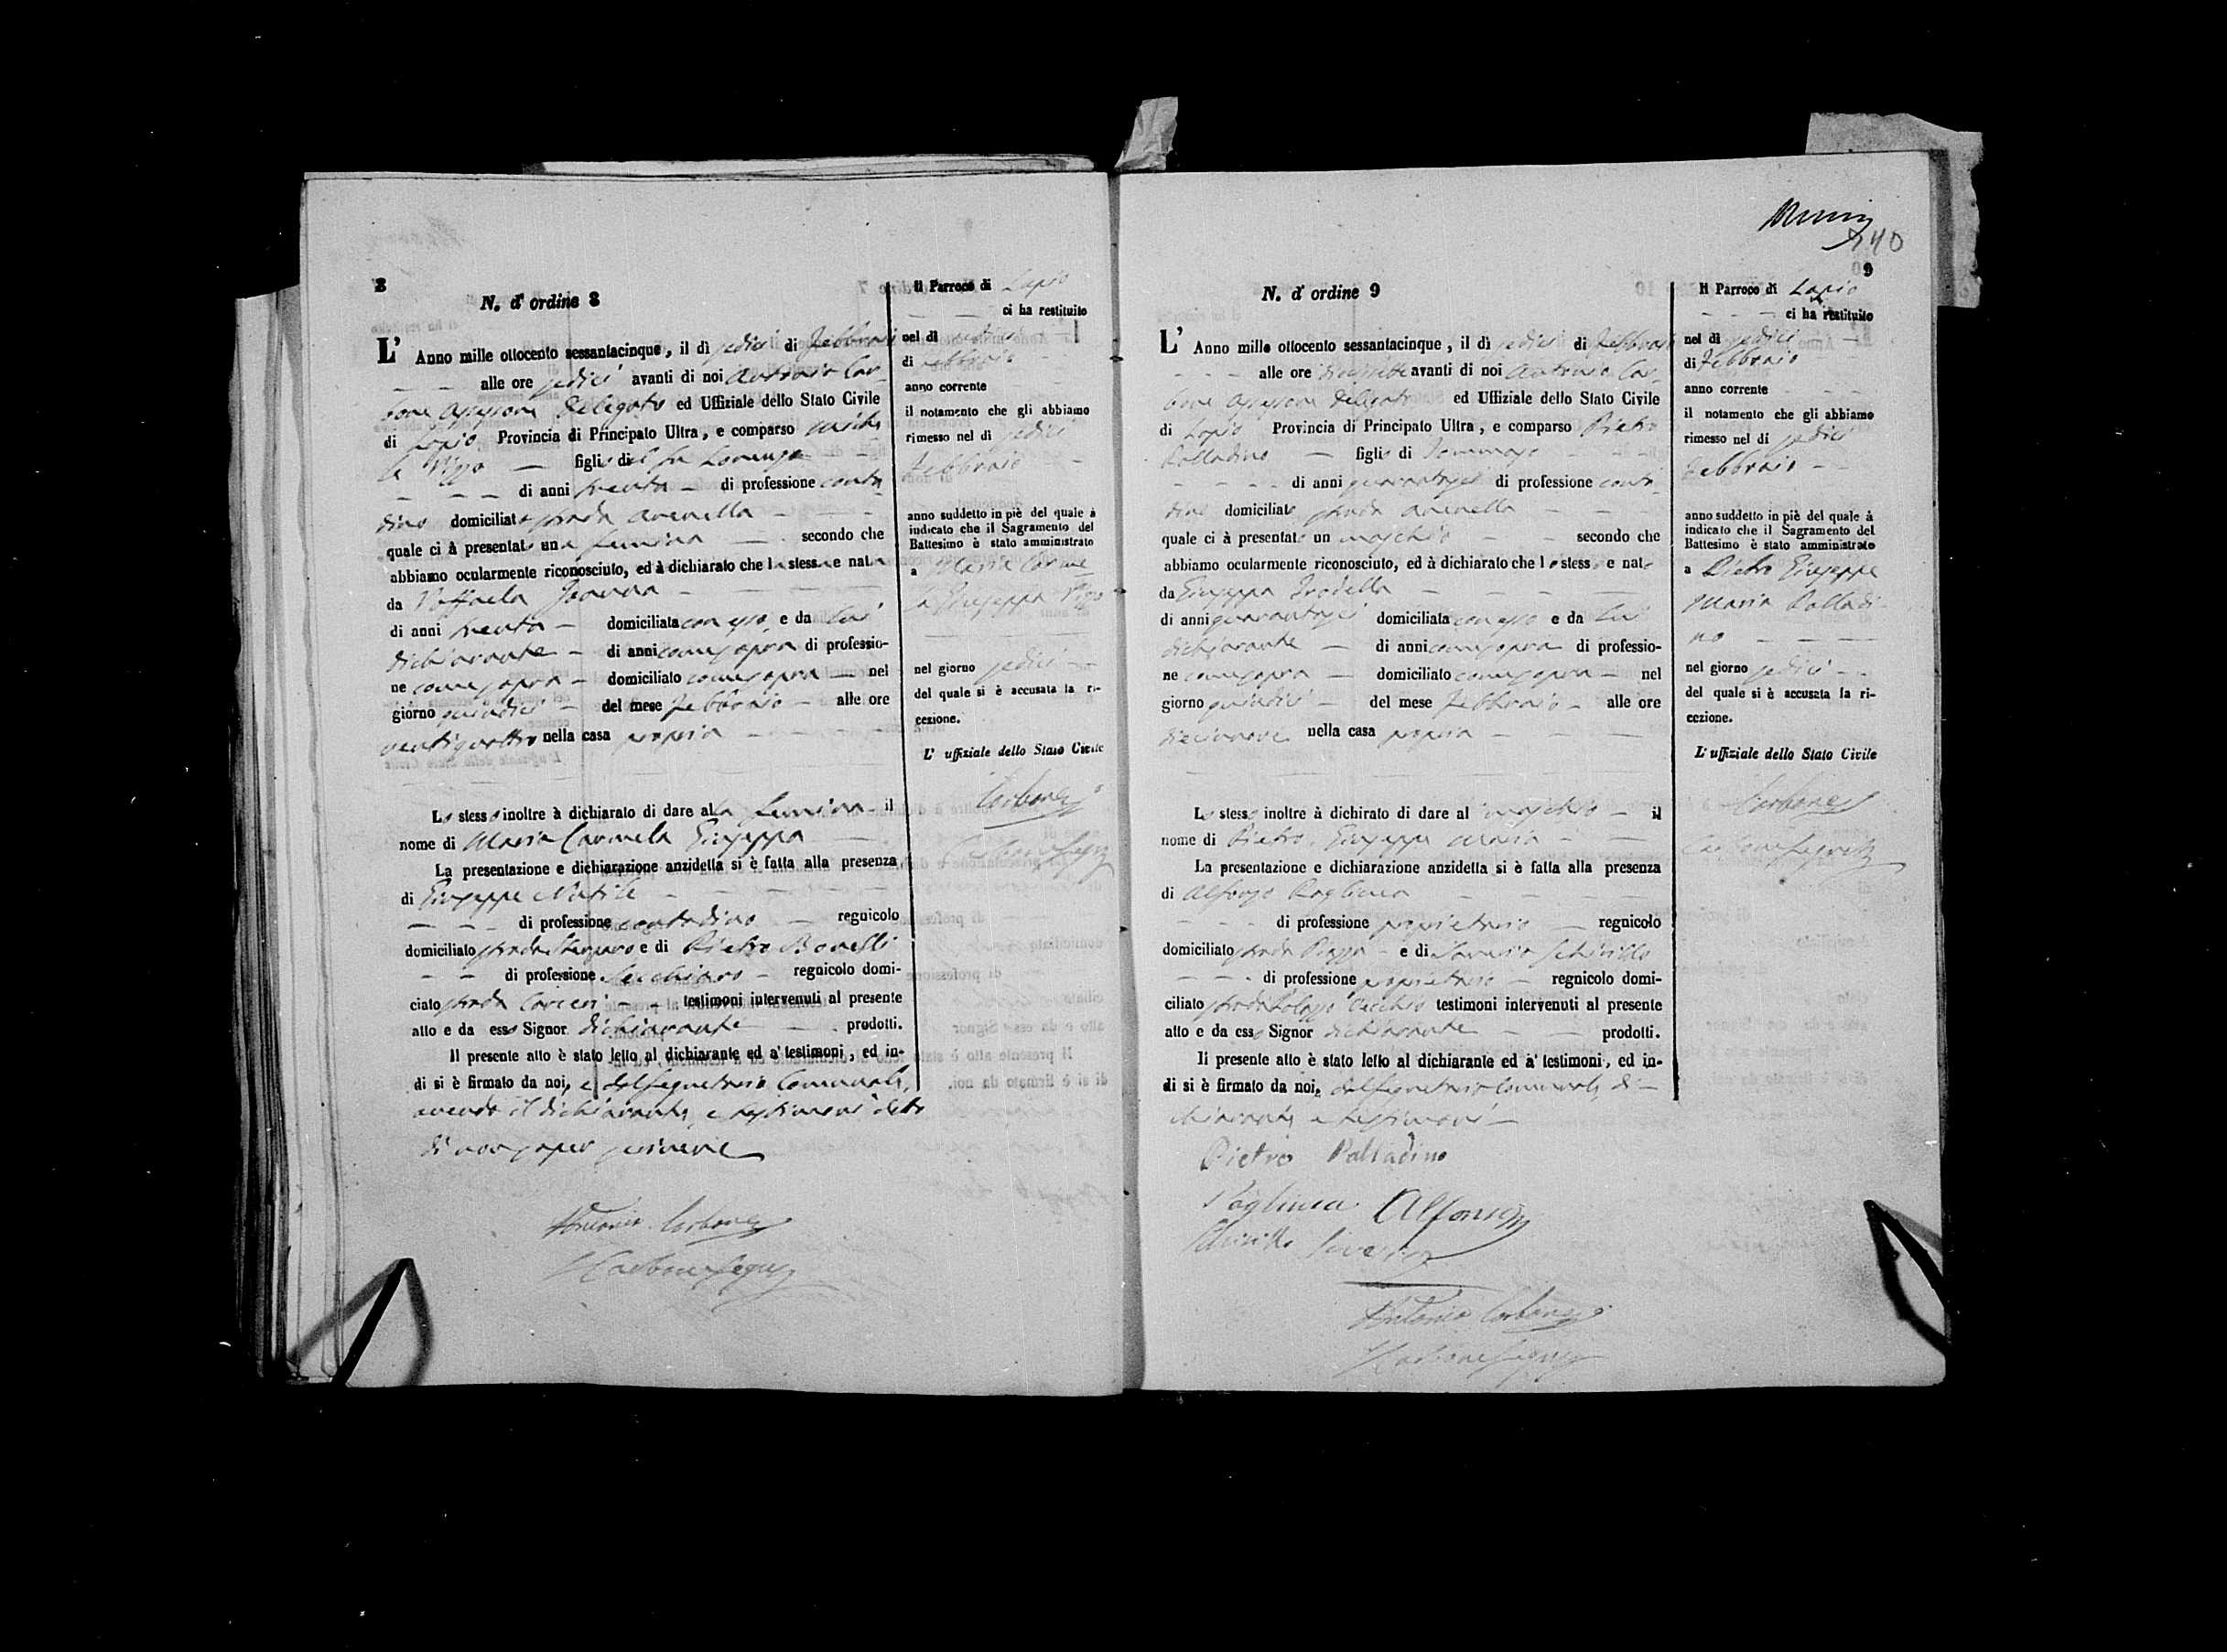 8
N. d' ordine 8
L' Anno mille ottocento sessantacinque, il dì sedici di Febbraio
alle ore sedici avanti di noi Antonio Car-
bone Assessore Delegato ed Uffiziale dello Stato Civile
di Lapio Provincia di Principato Ultra, e comparso Miche
le figlio di Lorenzo
di anni trenta di professione conta
dino domiciliato strada
quale ci à presentato una femina secondo che
abbiamo ocularmente riconosciuto, ed à dichiarato che la stessa e nata
da Raffaela
di anni trenta domiciliata con esso e da lui
dichiarante di anni come sopra di professio-
ne come sopra domiciliato come sopra nel
giorno quindici del mese Febbraio alle ore
ventiquattro nella casa propria
Lo stesso inoltre à dichiarato di dare alla femina il
nome di Maria Carmela Giuseppa
La presentazione e dichiarazione anzidetta si è fatta alla presenza
di Giuseppe
di professione contadino regnicolo
domiciliato strada e di Pietro
di professione regnicolo domi-
ciato strada Carceri testimoni intervenuti al presente
atto e da esso Signor dichiarante prodotti.
Il presente atto è stato letto al dichiarante ed a' testimoni, ed in-
di si è firmato da noi, e dal Segretario Comunale,
avendo il dichiarante, e testimoni detto
di non saper scrivere
Antonio Carbone
Carbone Segr
Il Parroco di Lapio
ci ha restituito
nel dì sedici
di Febbraio
anno corrente
il notamento che gli abbiamo
rimesso nel dì sedici
Febbraio
anno suddetto in piè del quale à
indicato che il Sagramento del
Battesimo è stato amministrato
a Maria Carme
la Giuseppa
nel giorno sedici
del quale si è accusata la ri-
cezione.
L' uffiziale dello Stato Civile
Carbone
240
9
N. d' ordine 9
L' Anno mille ottocento sessantacinque, il dì sedici di Febbraio
alle ore avanti di noi Antonio Car-
bone Assessore Delegato ed Uffiziale dello Stato Civile
di Lapio Provincia di Principato Ultra, e comparso Pietro
Palladino figlio di Tommaso
di anni quarantasei di professione conta
dino domiciliato strada
quale ci à presentato un maschio secondo che
abbiamo ocularmente riconosciuto, ed à dichiarato che lo stesso e nato
da Giuseppa
di anni quarantasei domiciliata con esso e da lui
dichiarante di anni come sopra di professio-
ne come sopra domiciliato come sopra nel
giorno quindici del mese Febbraio alle ore
diecinove nella casa propria
Lo stesso inoltre à dichirato di dare al maschio il
nome di Pietro Giuseppe Maria
La presentazione e dichiarazione anzidetta si è fatta alla presenza
di Alfonso Pagliuca
di professione proprietario regnicolo
domiciliato strada Piazza e di Saverio Schirillo
di professione proprietario regnicolo domi-
ciliato strada Palazzo Vecchio testimoni intervenuti al presente
atto e da esso Signor dichiarante prodotti.
Il presente atto è stato letto al dichiarante ed a' testimoni, ed in-
di si è firmato da noi, dal Segretario Comunale, di-
chiarante, e testimoni
Pietro Palladino
Pagliuca Alfonso
Schirillo Saverio
Antonio Carbone
Carbone Segr
Il Parroco di Lapio
ci ha restituito
nel dì sedici
di Febbraio
anno corrente
il notamento che gli abbiamo
rimesso nel dì sedici
Febbraio
anno suddetto in piè del quale à
indicato che il Sagramento del
Battesimo è stato amministrato
a Pietro Giuseppe
Maria Palladi
no
nel giorno sedici
del quale si è accusata la ri-
cezione.
L' uffiziale dello Stato Civile
Carbone